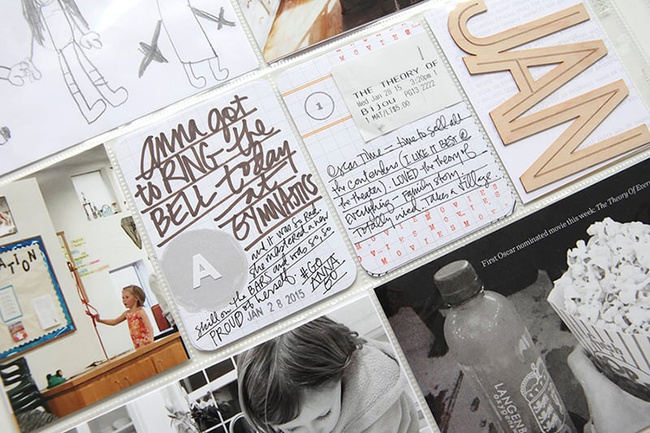 Anna got
to RING the
BELL today
at
GYMNASTICS
and it was so RAD.
she mastered a new
skill on the BARS and was so, so
PROUD of herself. #GO
ANNA
GO
JAN 28 2015
A
MOVIES
1
THE THEORY OF
Wed Jan 28 15 3:20pm
BIJOU PG13 2222
1 MAT/LT$5.00
Oscar Time — time to see all
the contenders (I LIKE IT BEST @
the theater). LOVED the Theory of
Everything — Family story —
Totally cried. Takes a village.
MOVIES MOVIES
MOVIES MOVIES
JAN
First Oscar nominated movie this week: The Theory Of Ever
LANGEN
PTION